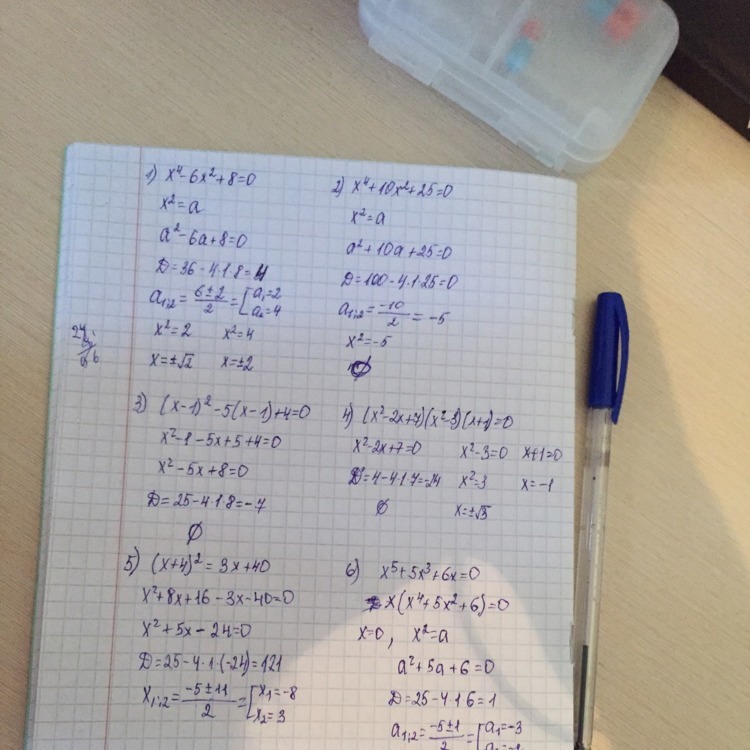 1) x⁴-6x²+8=0
x²=a
a²-6a+8=0
D=36-4·1·8=4
a₁;₂=(6±2)/2=[a₁=2 a₂=4
x²=2 x²=4
x=±√2 x=±2
2) x⁴+10x²+25=0
x²=a
a²+10a+25=0
D=100-4·1·25=0
a₁;₂=-10/2=-5
x²=-5
∅
3) (x-1)²-5(x-1)+4=0
x²-1-5x+5+4=0
x²-5x+8=0
D=25-4·1·8=-7
∅
4) (x²-2x+7)(x²-3)(x+1)=0
x²-2x+7=0 x²-3=0 x+1=0
D=4-4·1·7=-24 x²=3 x=-1
∅ x=±√3
5) (x+4)²=3x+40
x²+8x+16-3x-40=0
x²+5x-24=0
D=25-4·1·(-24)=121
x₁;₂=(-5±11)/2=[x₁=-8 x₂=3
6) x⁵+5x³+6x=0
x(x⁴+5x²+6)=0
x=0, x²=a
a²+5a+6=0
D=25-4·1·6=1
a₁;₂=(-5±1)/2=[a₁=-3